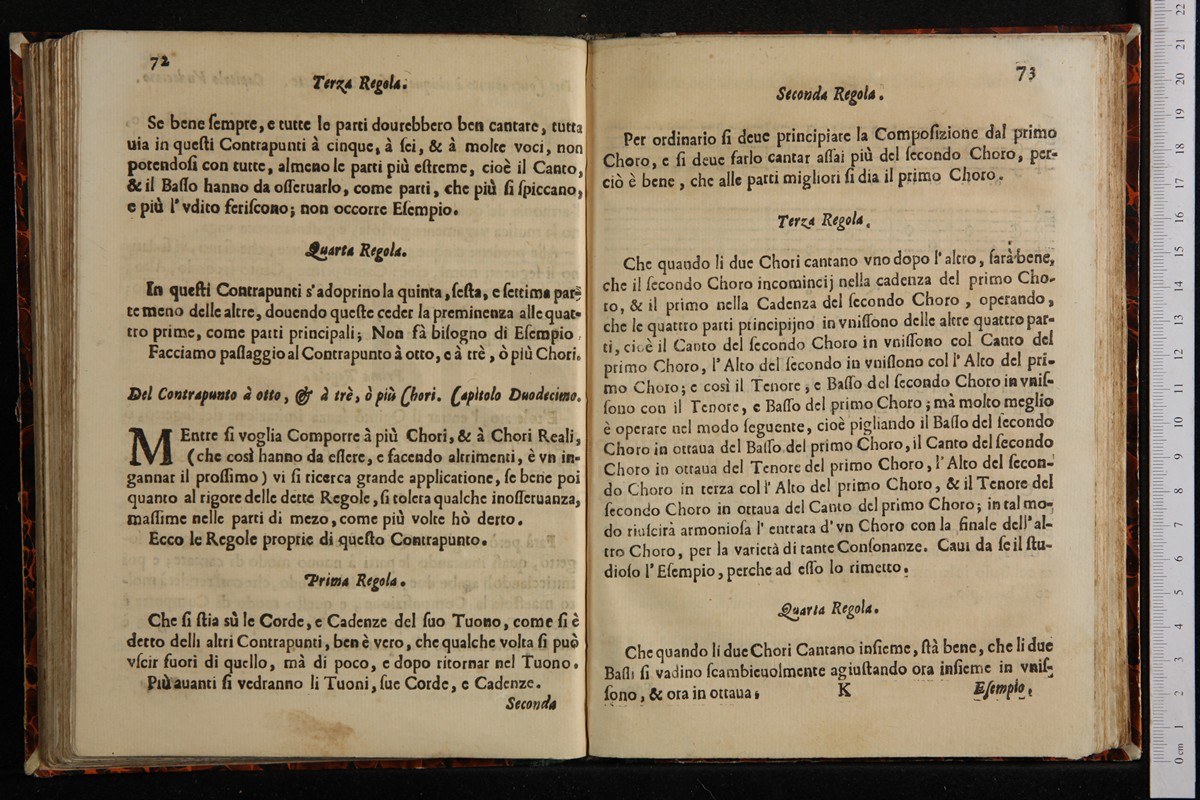 72
Terza Regola.
Se bene ſempre, e tutte le parti dourebbero ben cantare, tutta
uia in queſti Contrapunti à cinque, à ſei, & à molte voci, non
potendoſi con tutte, almeno le parti più eſtreme, cioè il Canto,
& il Baſſo hanno da oſſeruarlo, come parti, che più ſi ſpiccano,
e più l' vdito feriſcono; non occorre Eſempio.
Quarta Regola.
In queſti Contrapunti s'adoprino la quinta, ſeſta, e ſettima par-
te meno delle altre, douendo queſte ceder la preminenza alle quat-
tro prime, come parti principali; Non fà biſogno di Eſempio.
Facciamo paſſaggio al Contrapunto à otto, e à trè, ò più Chori.
Del Contrapunto à otto, & à trè, ò più Chori. Capitolo Duodecimo.
MEntre ſi voglia Comporre à più Chori, & à Chori Reali,
(che così hanno da eſſere, e facendo altrimenti, è vn in-
gannar il proſſimo) vi ſi ricerca grande applicatione, ſe bene poi
quanto al rigore delle dette Regole, ſi tolera qualche inoſſeruanza,
maſſime nelle parti di mezo, come più volte hò detto.
Ecco le Regole proprie di queſto Contrapunto.
Prima Regola.
Che ſi ſtia sù le Corde, e Cadenze del ſuo Tuono, come ſi è
detto delli altri Contrapunti, ben è vero, che qualche volta ſi può
vſcir fuori di quello, mà di poco, e dopo ritornar nel Tuono.
Più auanti ſi vedranno li Tuoni, ſue Corde, e Cadenze.
Seconda
73
Seconda Regola.
Per ordinario ſi deue principiare la Compoſizione dal primo
Choro, e ſi deue farlo cantar aſſai più del ſecondo Choro, per-
ciò è bene, che alle parti migliori ſi dia il primo Choro.
Terza Regola.
Che quando li due Chori cantano vno dopo l' altro, ſarà bene,
che il ſecondo Choro incomincij nella cadenza del primo Cho-
ro, & il primo nella Cadenza del ſecondo Choro, operando,
che le quattro parti principijno in vniſſono delle altre quattro par-
ti, cioè il Canto del ſecondo Choro in vniſſono col Canto del
primo Choro, l' Alto del ſecondo in vniſſono col l' Alto del pri-
mo Choro; e così il Tenore, e Baſſo del ſecondo Choro in vniſ-
ſono con il Tenore, e Baſſo del primo Choro; mà molto meglio
è operare nel modo ſeguente, cioè pigliando il Baſſo del ſecondo
Choro in ottaua del Baſſo del primo Choro, il Canto del ſecondo
Choro in ottaua del Tenore del primo Choro, l' Alto del ſecon-
do Choro in terza col l' Alto del primo Choro, & il Tenore del
ſecondo Choro in ottaua del Canto del primo Choro; in tal mo-
do riuſcirà armonioſa l' entrata d' vn Choro con la finale dell' al-
tro Choro, per la varietà di tante Conſonanze. Caui da ſe il ſtu-
dioſo l' Eſempio, perche ad eſſo lo rimetto.
Quarta Regola.
Che quando li due Chori Cantano inſieme, ſtà bene, che li due
Baſſi ſi vadino ſcambieuolmente agiuſtando ora inſieme in vniſ-
ſono, & ora in ottaua,
K
Eſempio.
0 cm 1 2 3 4 5 6 7 8 9 10 11 12 13 14 15 16 17 18 19 20 21 22